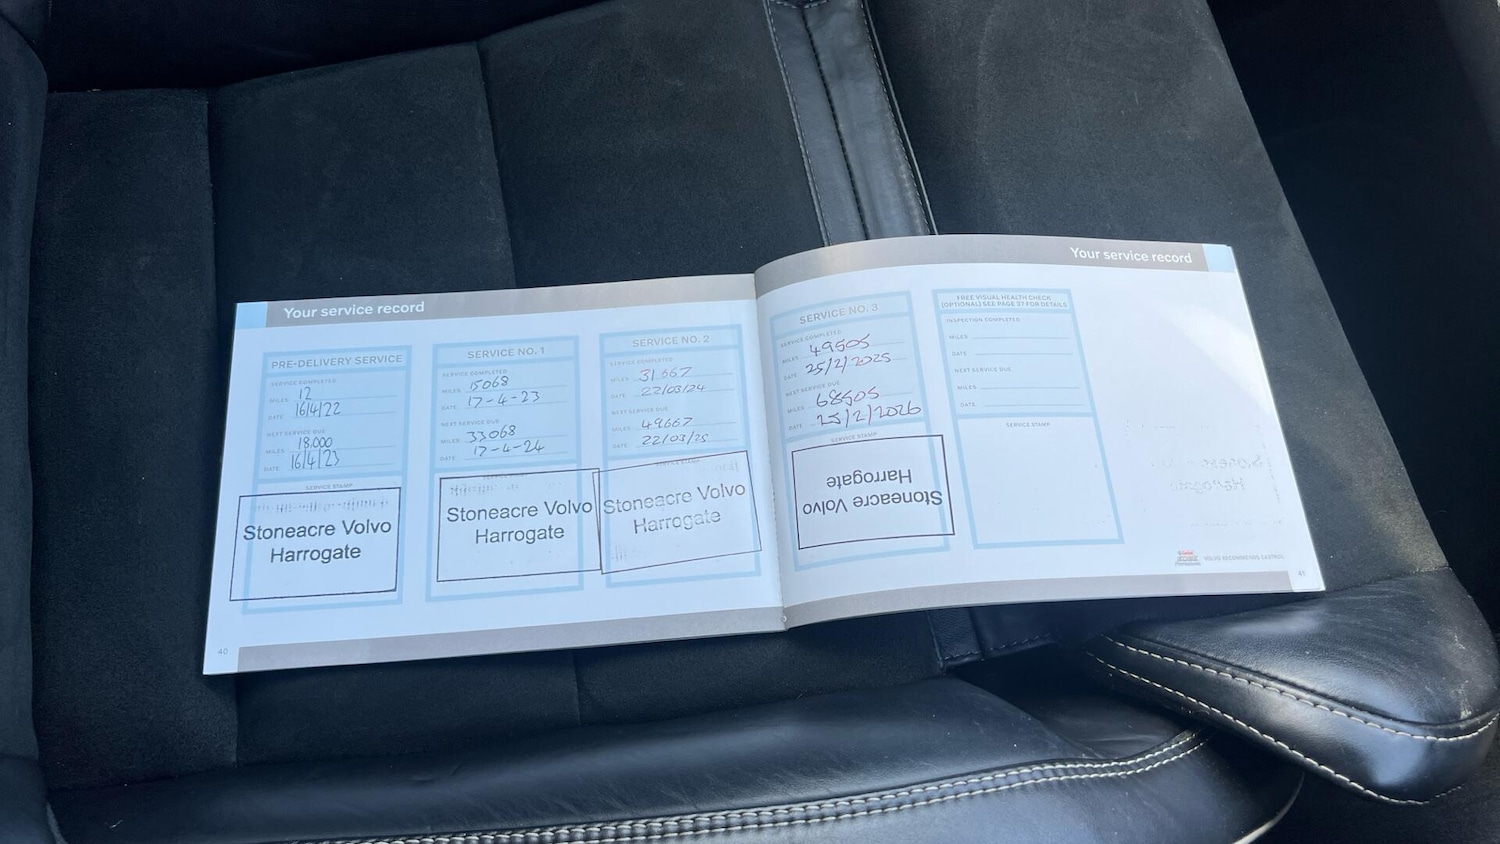 Your service record
PRE-DELIVERY SERVICE
SERVICE COMPLETED
MILES 12
DATE 16/4/22
NEXT SERVICE DUE
MILES 18,000
DATE 16/4/23
SERVICE STAMP
Stoneacre Volvo
Harrogate
SERVICE NO. 1
SERVICE COMPLETED
MILES 15068
DATE 17-4-23
NEXT SERVICE DUE
MILES 33068
DATE 17-4-24
Stoneacre Volvo
Harrogate
SERVICE NO. 2
SERVICE COMPLETED
MILES 31567
DATE 22/03/24
NEXT SERVICE DUE
MILES 49667
DATE 22/03/25
Stoneacre Volvo
Harrogate
40
Your service record
SERVICE NO. 3
SERVICE COMPLETED
MILES 49505
DATE 25/2/2025
NEXT SERVICE DUE
MILES 68505
DATE 25/2/2026
SERVICE STAMP
Stoneacre Volvo
Harrogate
FREE VISUAL HEALTH CHECK
(OPTIONAL) SEE PAGE 37 FOR DETAILS
INSPECTION COMPLETED
MILES
DATE
NEXT SERVICE DUE
MILES
DATE
SERVICE STAMP
VOLVO RECOMMENDS CASTROL
41